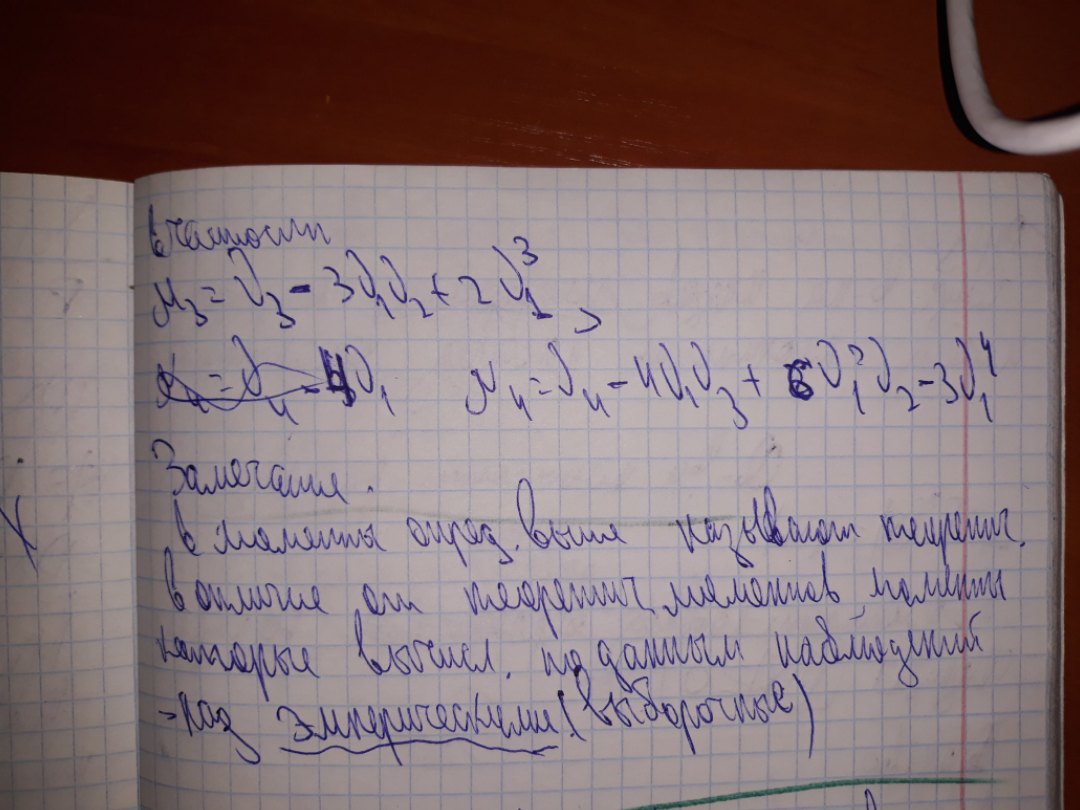 в частности
μ₃ = ν₃ - 3ν₁ν₂ + 2ν₁³,
μ₄ = ν₄ - 4ν₁ μ₄ = ν₄ - 4ν₁ν₃ + 6ν₁²ν₂ - 3ν₁⁴
Замечание.
в моменты опред. выше называют теоретич.
В отличие от теоретич. моментов, моменты
которые вычисл. по данным наблюдений
- наз эмперическими (выборочные)